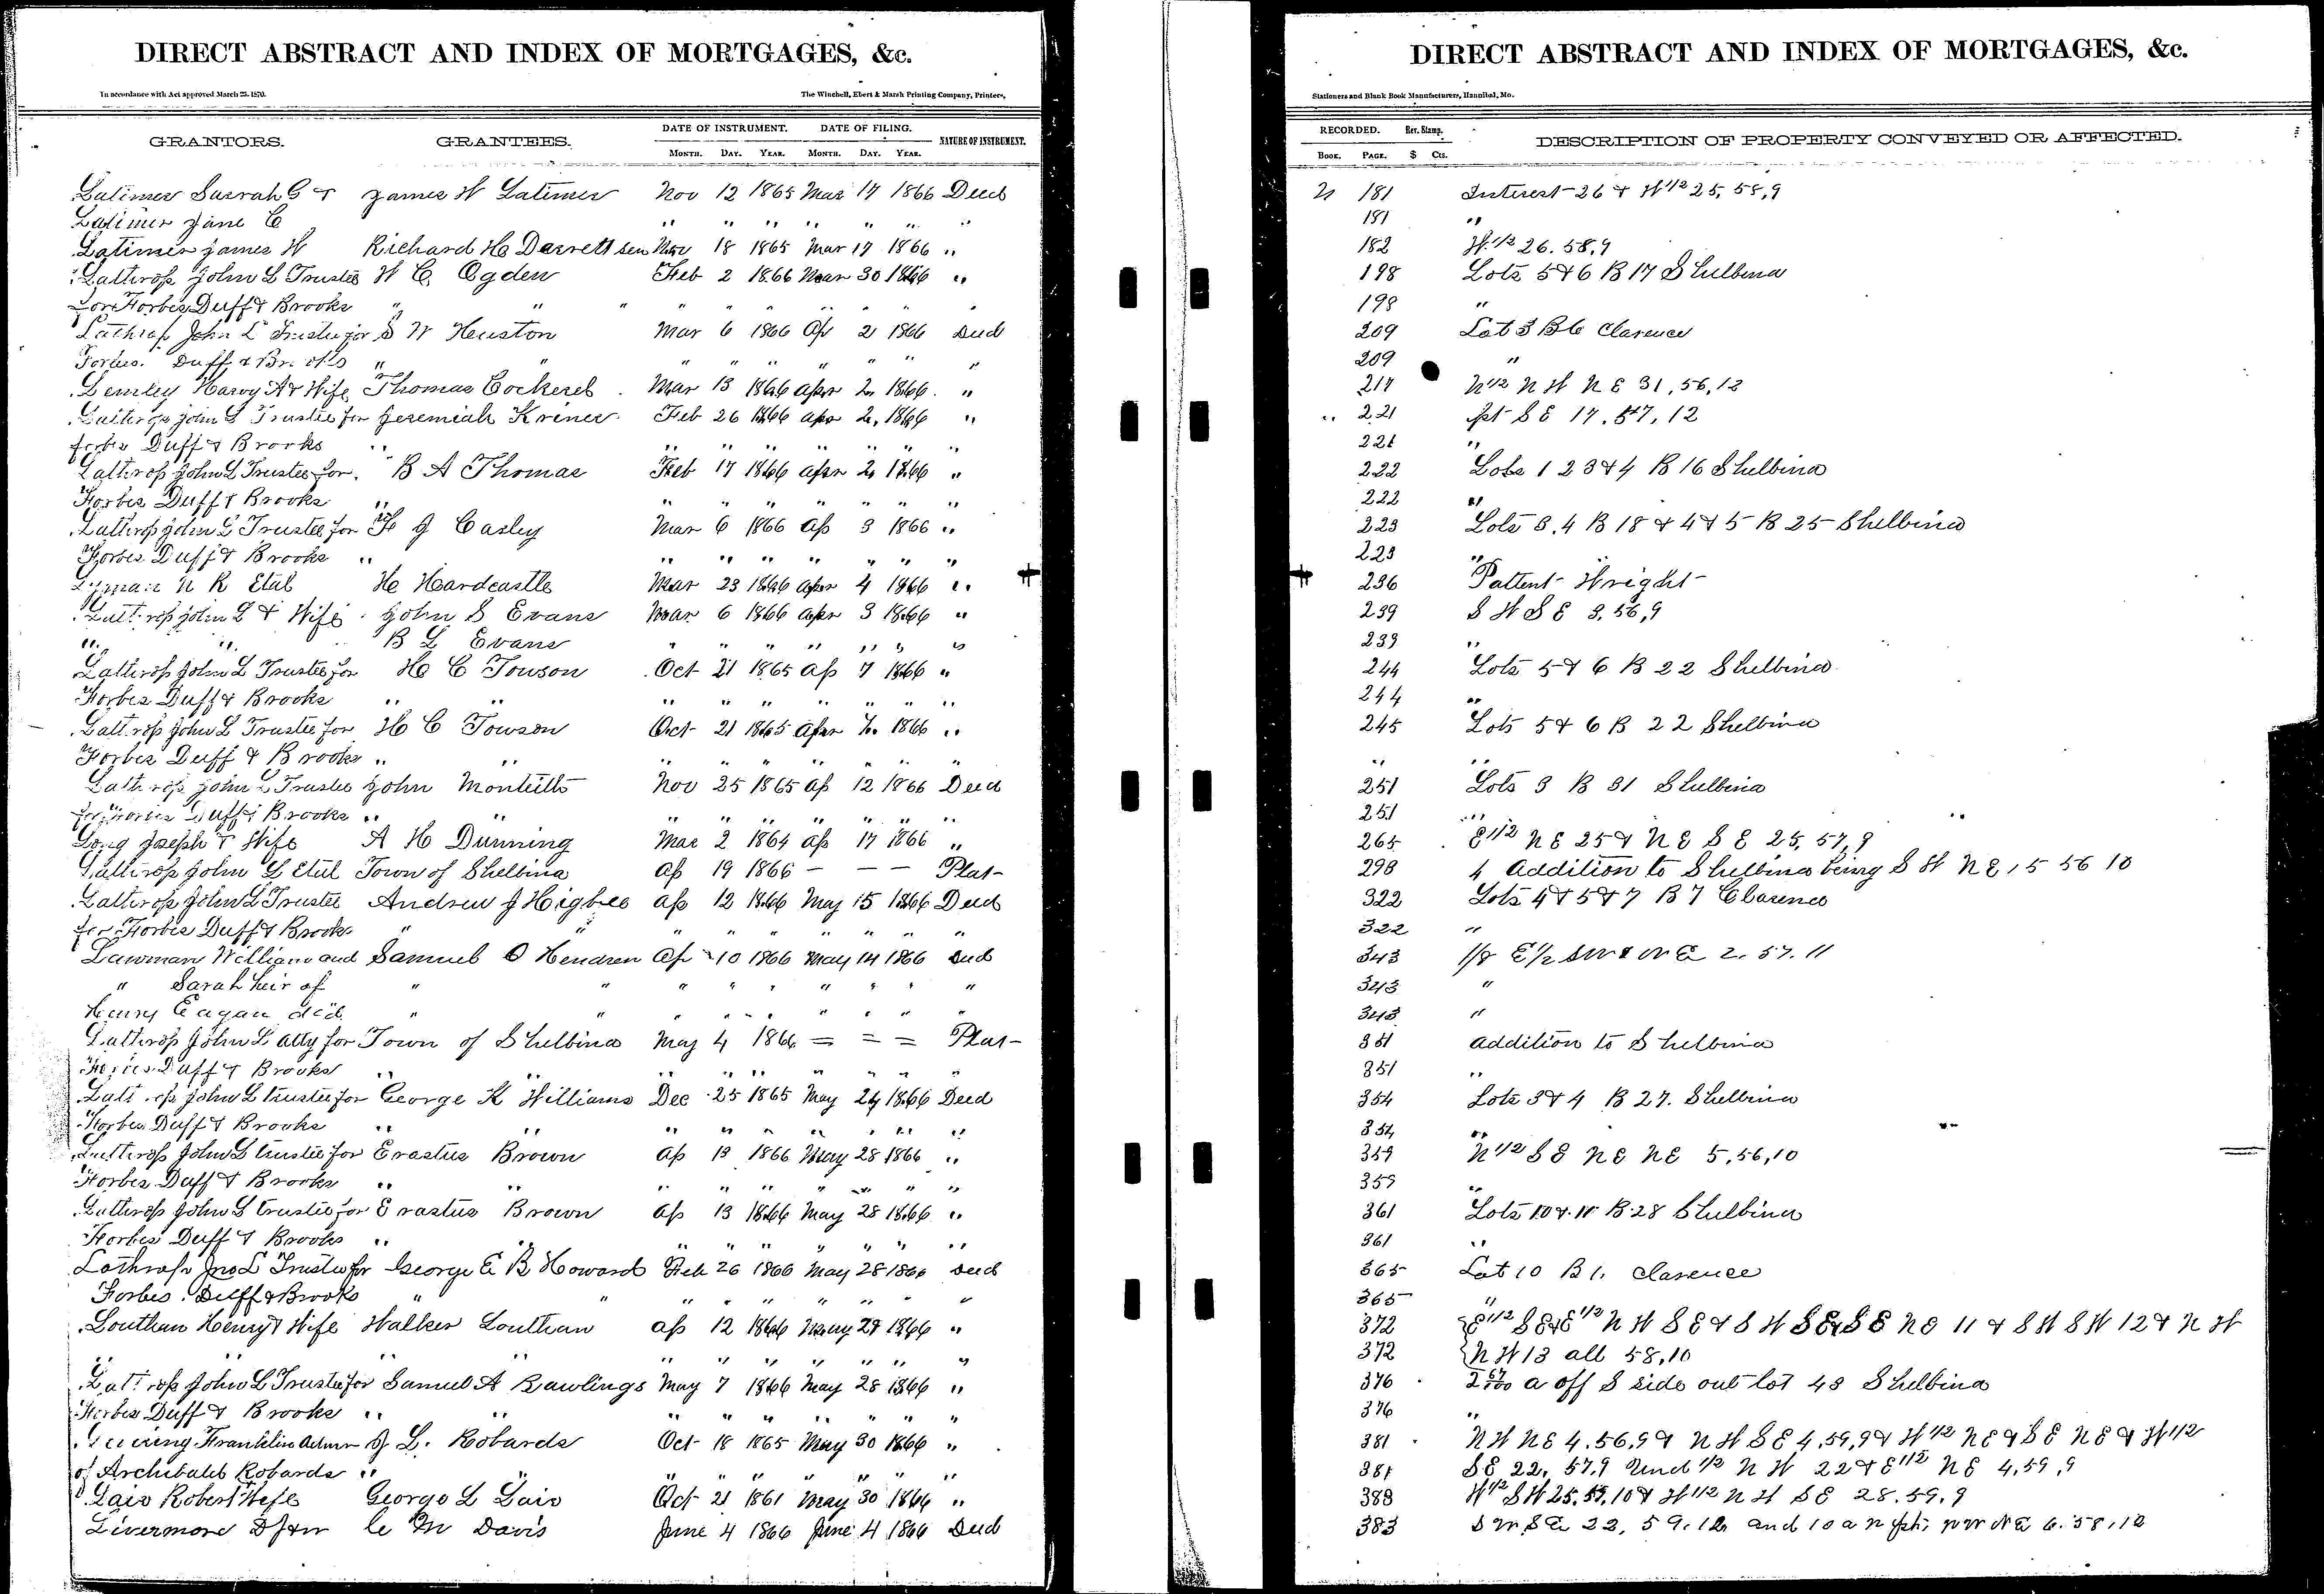 DIRECT ABSTRACT AND INDEX OF MORTGAGES, &c.
In accordance with Act approved March 25, 1870.
The Winchell, Ebert & Marsh Printing Company, Printers,
GRANTORS. GRANTEES. DATE OF INSTRUMENT. DATE OF FILING. NATURE OF INSTRUMENT.
MONTH. DAY. YEAR. MONTH. DAY. YEAR.
Latimer Sarrah G & James W Latimer Nov 12 1865 Mar 17 1866 Deed
Latimer Jane C " " " " " " "
Latimer James W Richard H Darrett sen Nov 18 1865 Mar 17 1866 "
Lathrop John L Trustee W C Ogden Feb 2 1866 Mar 30 1866 "
For Forbes Duff & Brooks " " " " " " " " "
Lathrop John L Trustee for S W Heuston Mar 6 1866 Ap 2 1866 Deed
Forbes. Duff & Br. oks " " " " " " " "
Lemley Harvy A & Wife Thomas Cockereb Mar 13 1866 Apr 2 1866 "
Lathrop John L Trustee for Jeremiah Kriner Feb 26 1866 Apr 2, 1866 "
forbes Duff & Brooks " " " " " " "
Lathrop John L Trustee for B A Thomas Feb 17 1866 Apr 2 1866 "
Forbes Duff & Brooks " " " " " " " "
Lathrop John L Trustee for F J Casley Mar 6 1866 Ap 3 1866 "
Forbes Duff & Brooks " " " " " " " "
Lyman N K Etal H Hardcastle Mar 23 1866 Apr 4 1866 "
Lathrop John L & Wife John S Evans Mar 6 1866 Apr 3 1866 "
" " B L Evans " " " " " "
Lathrop John L Trustee for H C Towson Oct 21 1865 Ap 7 1866 "
Forbes Duff & Brooks " " " " " " " " "
Lathrop John L Trustee for H C Towson Oct 21 1865 Apr 7 1866 "
Forbes Duff & Brooks " " " " " " " " "
Lathrop John L Trustee John Monteith Nov 25 1865 Ap 12 1866 Deed
for Forbes Duff & Brooks " " " " " " " " "
Long Joseph & Wife A H Dunning Mar 2 1864 Ap 17 1866 "
Lathrop John L Etal Town of Shelbina Ap 19 1866 — — — Plat
Lathrop John L Trustee Andrew J Higbee Ap 12 1866 May 15 1866 Deed
for Forbes Duff & Brooks " " " " " " " " "
Lawman William and Samuel O Hendren Ap 10 1866 May 14 1866 Deed
" Sarah heir of " " " " " " " " "
Henry Eagan decd " " " " " " " " "
Lathrop John L atty for Town of Shelbina May 4 1866 = = = Plat
Forbes Duff & Brooks " " " " " " " " "
Lathrop John L trustee for George K Williams Dec 25 1865 May 24 1866 Deed
Forbes Duff & Brooks " " " " " " " " "
Lathrop John L trustee for Erastus Brown Ap 13 1866 May 28 1866 "
Forbes Duff & Brooks " " " " " " " " "
Lathrop John L trustee for Erastus Brown Ap 13 1866 May 28 1866 "
Forbes Duff & Brooks " " " " " " " " "
Lathrop Jno L Trustee for George E B Howard Feb 26 1866 May 28 1866 Deed
Forbes. Duff & Brooks " " " " " " " " "
Louthan Henry & Wife Walker Louthan Ap 12 1866 May 29 1866 "
" " " " " " " " "
Lathrop John L Trustee for Samuel A Rawlings May 7 1866 May 28 1866 "
Forbes Duff & Brooks " " " " " " " " "
Franklin Admr J L. Robards Oct 18 1865 May 30 1866 "
of Archibald Robards " " " " " " " " "
Lair Robert & Wife George L Lair Oct 21 1861 May 30 1866 "
Livermore D J & w C M Davis June 4 1866 June 4 1866 Deed
DIRECT ABSTRACT AND INDEX OF MORTGAGES, &c.
Stationers and Blank Book Manufacturers, Hannibal, Mo.
RECORDED. Rev. Stamp. DESCRIPTION OF PROPERTY CONVEYED OR AFFECTED.
BOOK. PAGE. $ Cts.
N 181 Interest 26 & W 1/2 25, 58, 9
181 "
182 W 1/2 26. 58, 9
198 Lots 5 & 6 B 17 Shelbina
198 "
209 Lot 3 B 6 Clarence
209 "
217 N 1/2 N W N E 31, 56, 12
" 221 pt S E 17, 57, 12
221 "
222 Lots 1 2 3 & 4 B 16 Shelbina
222 "
223 Lots 3, 4 B 18 & 4 & 5 B 25 Shelbina
223 "
236 Pattent Wright
239 S W S E 3, 56, 9
239 "
244 Lots 5 & 6 B 22 Shelbina
244 "
245 Lots 5 & 6 B 22 Shelbina
" "
251 Lots 3 B 31 Shelbina
251 "
265 E 1/2 N E 25 & N E S E 25, 57, 9
298 4 Addition to Shelbina being S W N E, 5 56 10
322 Lots 4 & 5 & 7 B 7 Clarence
322 "
343 1/8 E 1/2 SW & NE 2. 57. 11
343 "
343 "
351 Addition to Shelbina
351 "
354 Lots 3 & 4 B 27. Shelbina
354 "
359 N 1/2 S E N E N E 5, 56, 10
359 "
361 Lots 10 & 11 B 28 Shelbina
361 "
365 Lot 10 B 1. Clarence
365 "
372 E 1/2 S E & E 1/2 N W S E & S W S E & S E N E 11 & S W S W 12 & N W
372 N W 13 all 58, 10
376 2 67/100 a off S side out lot 43 Shelbina
376 "
381 N W N E 4, 56, 9 & N W S E 4, 59, 9 & W 1/2 N E & S E N E & W 1/2
381 S E 22, 57, 9 Und 1/2 N W 22 & E 1/2 N E 4, 59, 9
388 W 1/2 S W 25, 59, 10 & W 1/2 N W S E 28. 59. 9
383 S W S E 22, 59. 12 and 10 a n pt, NW NE 6. 58, 12